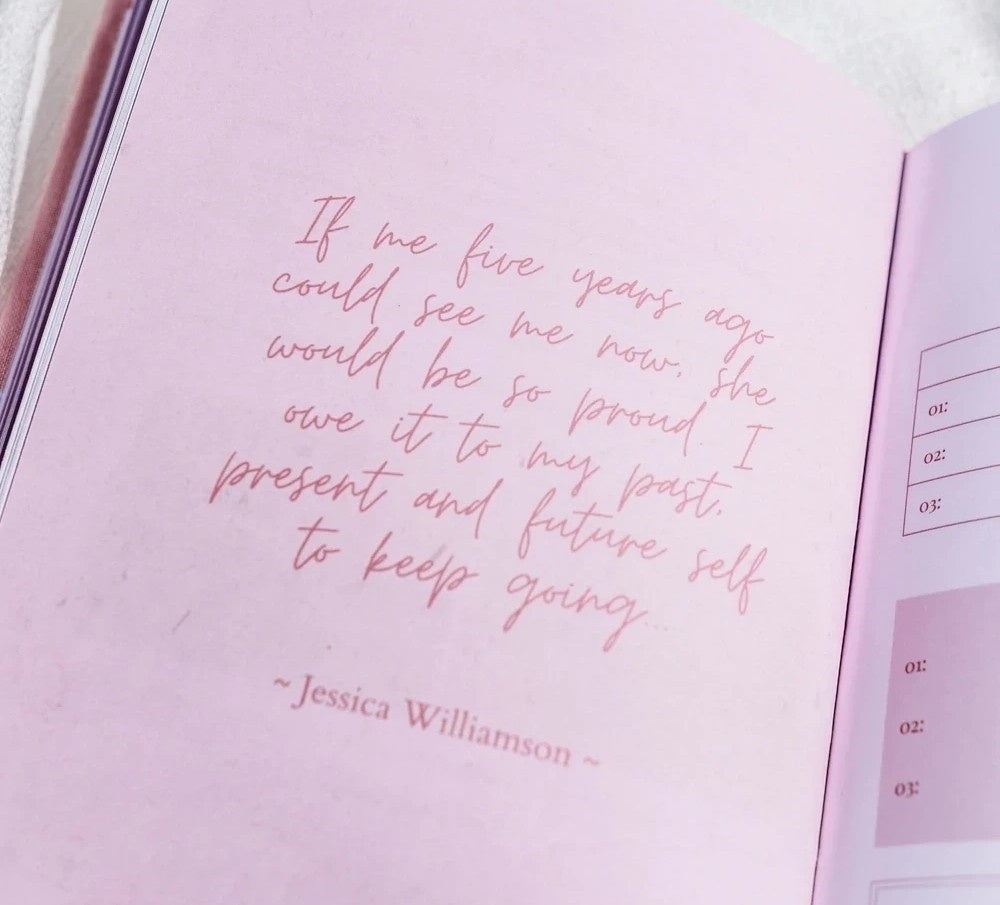 If me five years ago
could see me now, she
would be so proud. I
owe it to my past,
present and future self
to keep going...
~ Jessica Williamson ~
01:
02:
03:
01:
02:
03: